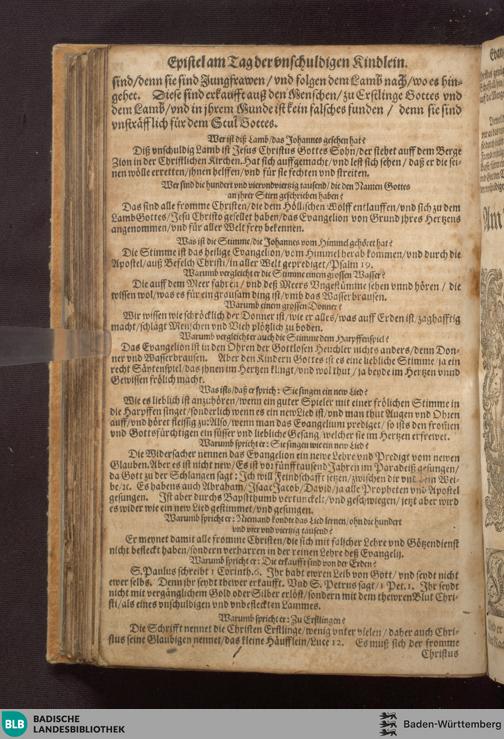 Epistel am Tag der vnschuldigen Kindlein.
sind/denn sie sind Jungfrawen/vnd folgen dem Lamb nach/wo es hin-
gehet. Diese sind erkaufft auß den Menschen/zu Erstlinge Gottes vnd
dem Lamb/vnd in jhrem Munde ist kein falsches funden/ denn sie sind
vnsträfflich für dem Stul Gottes.
Wer ist diß Lamb/das Johannes gesehen hat?
Diß vnschuldig Lamb ist Jesus Christus Gottes Sohn/der stehet auff dem Berge
Zion in der Christlichen Kirchen. Hat sich auffgemacht/vnd lest sich sehen/ daß er die sei-
nen wölle erretten/jhnen helffen/vnd für sie fechten vnd streiten.
Wer sind die hundert vnd vierundviertzig tausend/die den Namen Gottes
an jhrer Stirn geschrieben haben?
Das sind alle fromme Christen/die dem Höllischen Wolff entlauffen/vnd sich zu dem
Lamb Gottes/Jesu Christo gesellet haben/das Evangelion von Grund jhres Hertzens
angenommen/vnd für aller Welt frey bekennen.
Was ist die Stimme/die Johannes vom Himmel gehöret hat?
Die Stimme ist das heilige Evangelion/vom Himmel herab kommen/vnd durch die
Apostel/auß Befelch Christi/in aller Welt geprediget/Psalm 19.
Warumb vergleicht er die Stimme einem grossen Wasser?
Die auff dem Meer fahren/ vnd deß Meers Vngestümme sehen vnnd hören/ die
wissen wol/was es für ein grausam ding ist/vmb das Wasserbrausen.
Warumb einem grossen Donner?
Wir wissen wie schröcklich der Donner ist/wie er alles/was auff Erden ist/zaghafftig
macht/schlägt Menschen vnd Vieh plötzlich zu boden.
Warumb vergleichter auch die Stimme dem Harpffenspiel?
Das Evangelion ist in den Ohren der Gottlosen Heuchler nichts anders/denn Don-
ner vnd Wasserbrausen. Aber den Kindern Gottes ist es eine liebliche Stimme ja ein
recht Säytenspiel/das jhnen im Hertzen klingt/vnd wol thut/ja beyde im Hertzen vnnd
Gewissen frölich macht.
Was ists/daß er sprich: Sie singen ein new Lied?
Wie es lieblich ist anzuhören/wenn ein guter Spieler mit einer frölichen Stimme in
die Harpffen singet/sonderlich wenn es ein new Lied ist/vnd man thut Augen vnd Ohren
auff/vnd höret fleissig zu: Also/wenn man das Evangelium prediget/so ists den fromen
vnd Gottsfürchtigen ein süsser vnd liebliche Gesang/welcher sie im Hertzen erfrewet.
Warumb spricht er: Sie singen wie ein new Lied?
Die Widersacher nennen das Evangelion ein newe Lehre vnd Predigt vom newen
Glauben. Aber es ist nicht new/Es ist vor fünfftausend Jahren im Paradeiß gesungen/
da Gott zu der Schlangen sagt: Ich will Feindschafft setzen/zwischen dir vnd dem Wei-
be/2c. Es habens auch Abraham/Isaac Jacob/David/ja alle Propheten vnd Apostel
gesungen. Ist aber durchs Bapsttthumb vertunckelt/vnd geschwiegen/jetzt aber wird
es wider wie ein new Lied gestimmet/vnd gesungen.
Warumb spricht er: Niemand kondte das Lied lernen/ohn die hundert
vnd vier vnd viertzig tausend?
Er meynet damit alle fromme Christen/die sich mit falscher Lehre vnd Götzendienst
nicht befleckt haben/sondern verharren in der reinen Lehre deß Evangelij.
Warumb spricht er: Die erkaufft sind von der Erden?
S. Paulus schreibt 1 Corinth. 6. Ihr habt ewren Leib von Gott/ vnd seydt nicht
ewer selbs. Denn jhr seydt thewer erkaufft. Vnd S. Petrus sagt/1 Pet. 1. Ihr seydt
nicht mit vergänglichem Gold oder Silber erlöst/sondern mit dem thewren Blut Chri-
sti/als eines vnschuldigen vnd vnbefleckten Lammes.
Warumb spricht er: Zu Erstlingen?
Die Schrifft nennet die Christen Erstlinge/wenig vnter vielen/ daher auch Chri-
stus seine Glaubigen nennet/das kleine Häufflein/Luce 12. Es muß sich der fromme
Christus
BLB
BADISCHE
LANDESBIBLIOTHEK
Baden-Württemberg